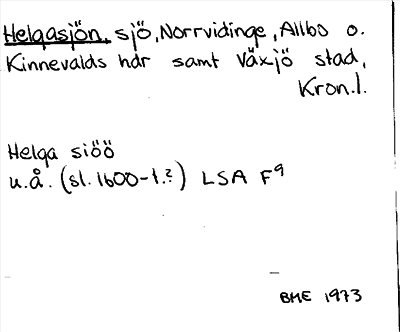 Helgasjön, sjö, Norrvidinge, Allbo o.
Kinnevalds hdr samt Växjö stad,
Kron.l.
Helga siöö
u.å. (sl. 1600-t.?) LSA F9
BME 1973